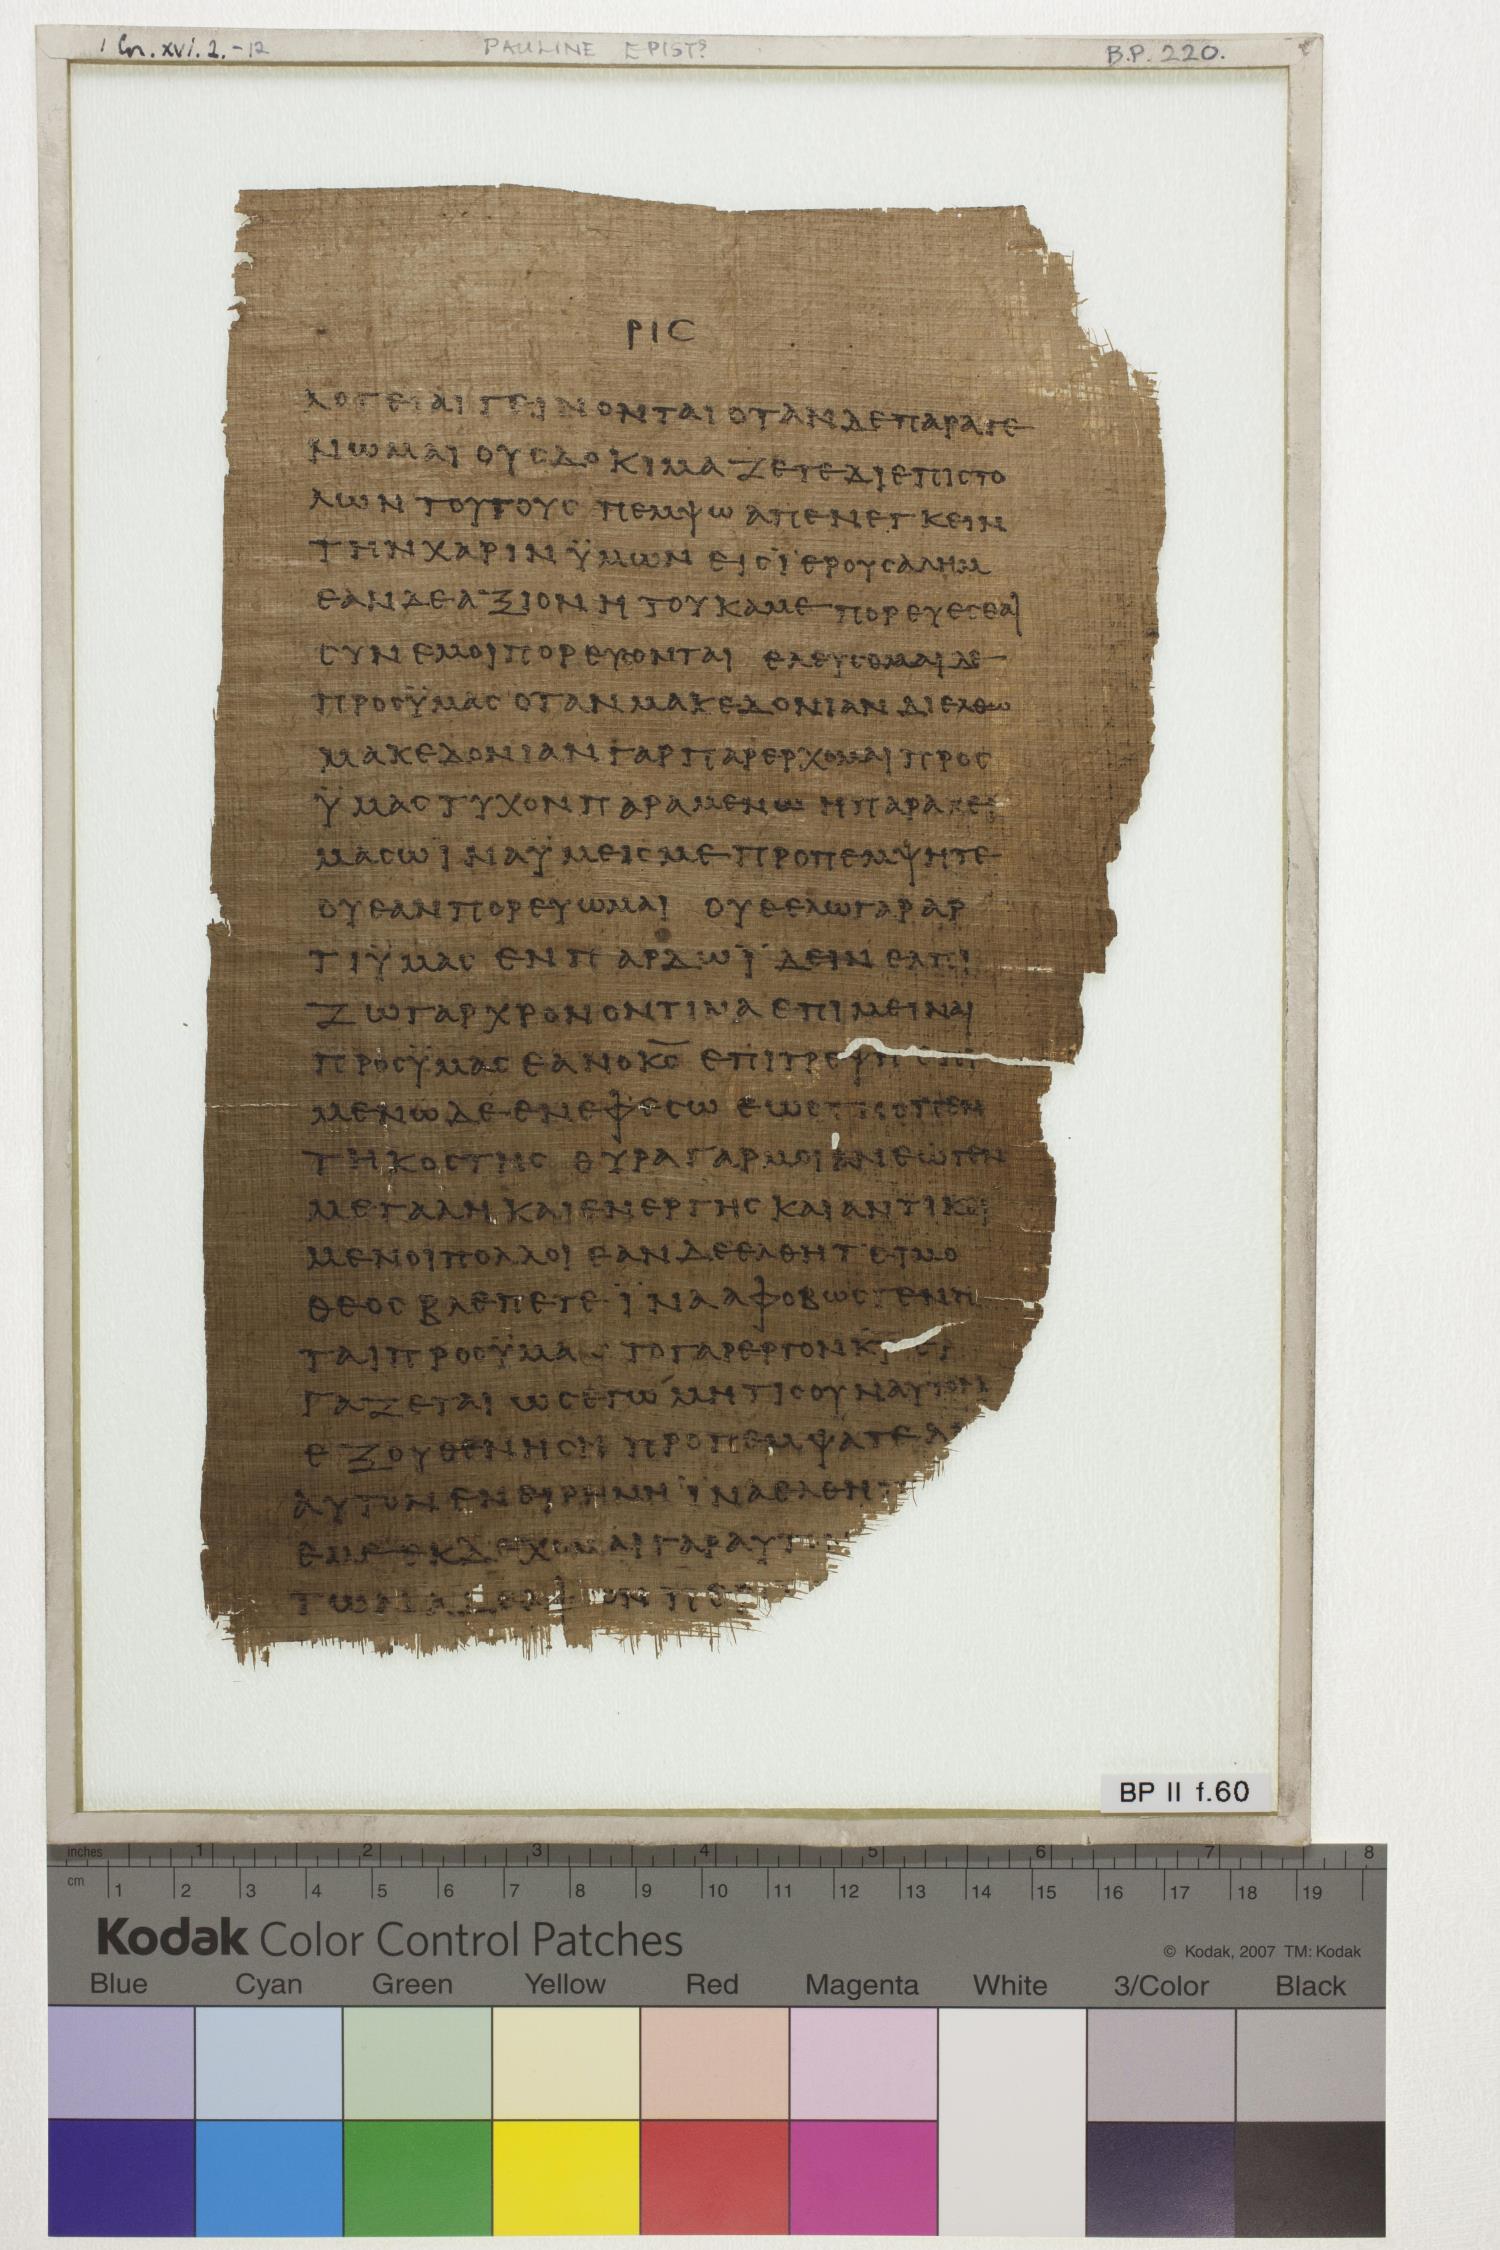 1 Cor. xvi. 2.-12 PAULINE EPIST? B.P. 220.
ΡΙϹ
ΛΟΓΕΙΑΙ ΓΕΙΝΟΝΤΑΙ ΟΤΑΝ ΔΕ ΠΑΡΑΓΕ
ΝΩΜΑΙ ΟΥϹ ΔΟΚΙΜΑΖΕΤΕ ΔΙ ΕΠΙϹΤΟ
ΛΩΝ ΤΟΥΤΟΥϹ ΠΕΜΨΩ ΑΠΕΝΕΓΚΕΙΝ
ΤΗΝ ΧΑΡΙΝ ΫΜΩΝ ΕΙϹ ΪΕΡΟΥϹΑΛΗΜ
ΕΑΝ ΔΕ ΑΞΙΟΝ Η ΤΟΥ ΚΑΜΕ ΠΟΡΕΥΕϹΘΑΙ
ϹΥΝ ΕΜΟΙ ΠΟΡΕΥϹΟΝΤΑΙ ΕΛΕΥϹΟΜΑΙ ΔΕ
ΠΡΟϹ ΫΜΑϹ ΟΤΑΝ ΜΑΚΕΔΟΝΙΑΝ ΔΙΕΛΘΩ
ΜΑΚΕΔΟΝΙΑΝ ΓΑΡ ΠΑΡΕΡΧΟΜΑΙ ΠΡΟϹ
ΫΜΑϹ ΤΥΧΟΝ ΠΑΡΑΜΕΝΩ Η ΠΑΡΑΧΕΙ
ΜΑϹΩ ΙΝΑ ΫΜΕΙϹ ΜΕ ΠΡΟΠΕΜΨΗΤΕ
ΟΥ ΕΑΝ ΠΟΡΕΥΩΜΑΙ ΟΥ ΘΕΛΩ ΓΑΡ ΑΡ
ΤΙ ΫΜΑϹ ΕΝ ΠΑΡΔΩ ΪΔΕΙΝ ΕΛΠΙ
ΖΩ ΓΑΡ ΧΡΟΝΟΝ ΤΙΝΑ ΕΠΙΜΕΙΝΑΙ
ΠΡΟϹ ΫΜΑϹ ΕΑΝ Ο Κ̅Ϲ̅ ΕΠΙΤΡΕΨΗ ΕΠΙ
ΜΕΝΩ ΔΕ ΕΝ ΕΦΕϹΩ ΕΩϹ ΤΗϹ ΠΕΝ
ΤΗΚΟϹΤΗϹ ΘΥΡΑ ΓΑΡ ΜΟΙ ΑΝΕΩΓΕΝ
ΜΕΓΑΛΗ ΚΑΙ ΕΝΕΡΓΗϹ ΚΑΙ ΑΝΤΙΚΕΙ
ΜΕΝΟΙ ΠΟΛΛΟΙ ΕΑΝ ΔΕ ΕΛΘΗ ΤΕΙΜΟ
ΘΕΟϹ ΒΛΕΠΕΤΕ ΪΝΑ ΑΦΟΒΩϹ ΓΕΝΗ
ΤΑΙ ΠΡΟϹ ΫΜΑϹ ΤΟ ΓΑΡ ΕΡΓΟΝ Κ̅Υ̅ ΕΡ
ΓΑΖΕΤΑΙ ΩϹ ΕΓΩ ΜΗ ΤΙϹ ΟΥΝ ΑΥΤΟΝ
ΕΞΟΥΘΕΝΗϹΗ ΠΡΟΠΕΜΨΑΤΕ Δ
ΑΥΤΟΝ ΕΝ ΕΙΡΗΝΗ ΪΝΑ ΕΛΘΗ
ΕΜΕ ΕΚΔΕΧΟΜΑΙ ΓΑΡ ΑΥΤΟΝ
ΤΩΝ ΑΔΕΛΦΩΝ ΠΕ
BP II f.60
inches 1 2 3 4 5 6 7 8
cm 1 2 3 4 5 6 7 8 9 10 11 12 13 14 15 16 17 18 19
Kodak Color Control Patches © Kodak, 2007 TM: Kodak
Blue Cyan Green Yellow Red Magenta White 3/Color Black